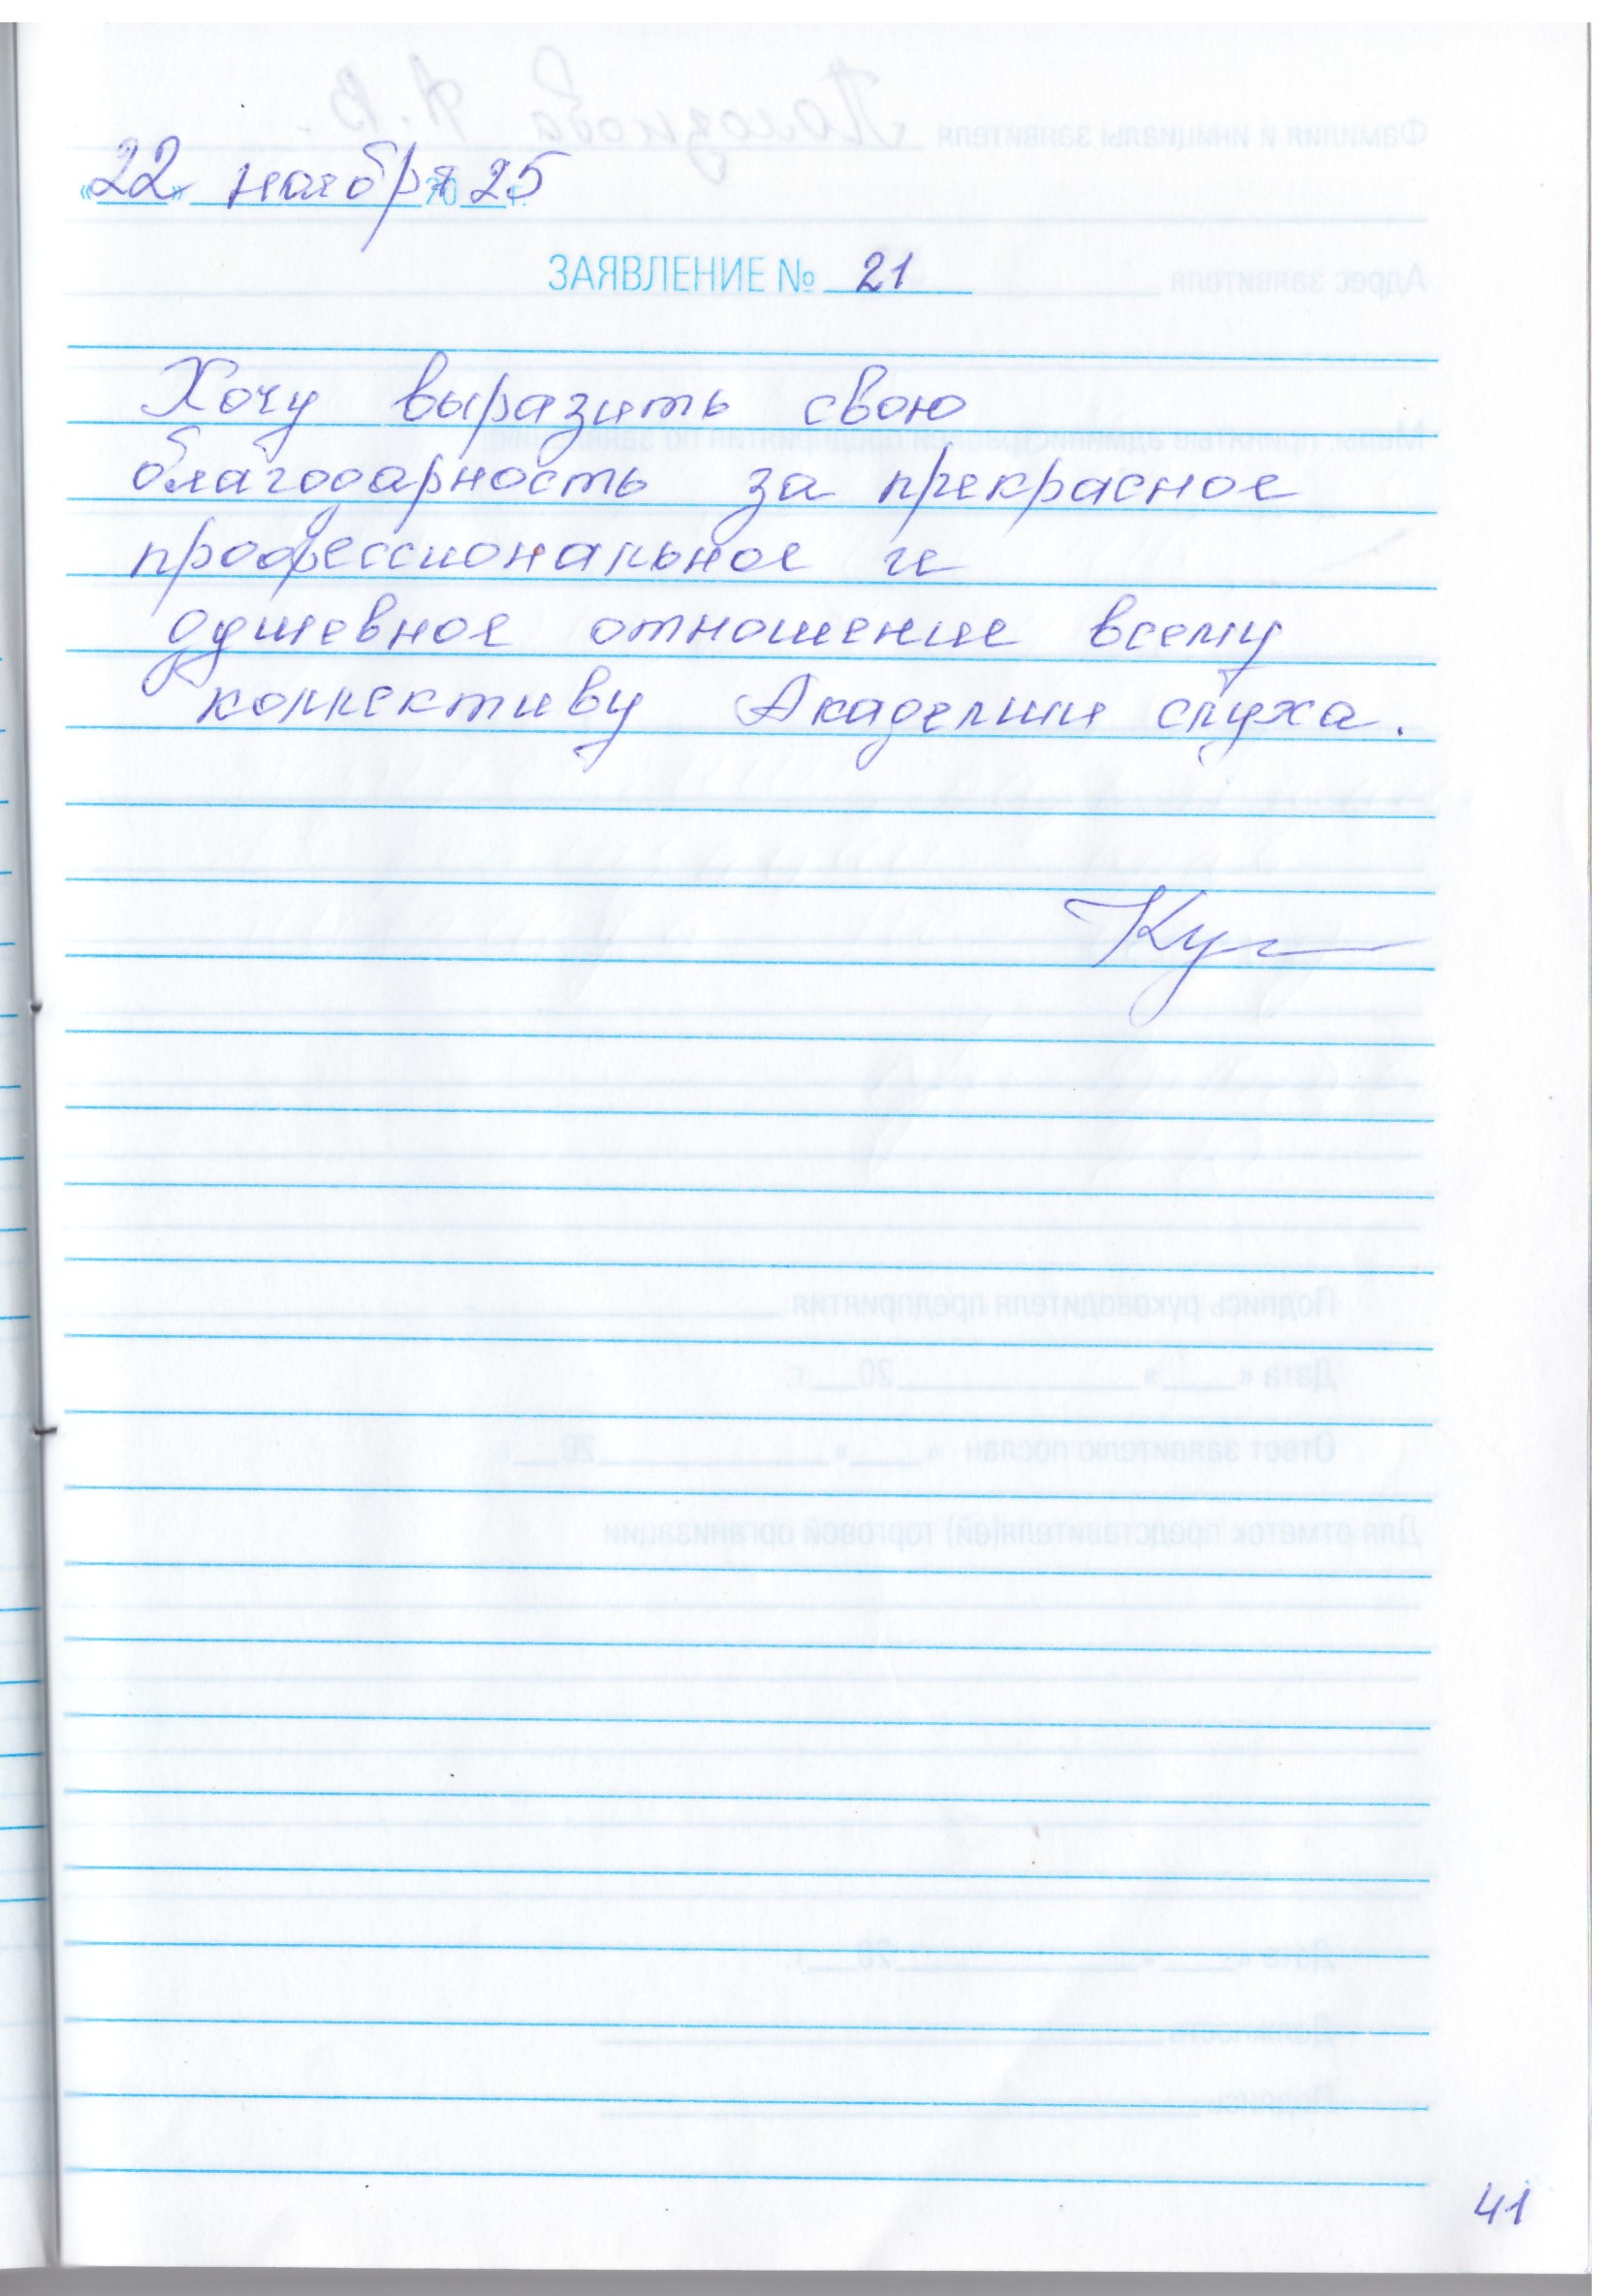 «22» ноября 2025 г.
ЗАЯВЛЕНИЕ № 21
Хочу выразить свою
благодарность за прекрасное
профессиональное и
душевное отношение всему
коллективу Академии слуха.
41